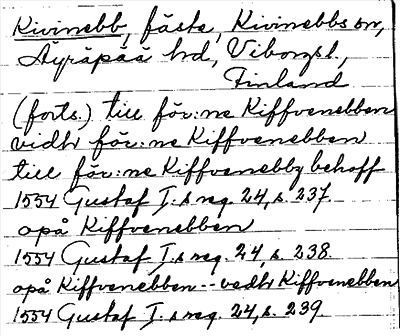 Kivinebb, fäste, Kivinebbs sn,
Äyräpää hd, Viborgsl.,
Finland
(forts.) till för:ne Kiffvenebben
vidtr för:ne Kiffvenebben
till för:ne Kiffvenebby behoff
1554 Gustaf I:s reg. 24, s. 237.
opå Kiffvenebben
1554 Gustaf I:s reg. 24, s. 238.
opå Kiffvenebben -- vedtr Kiffvenebben
1554 Gustaf I:s reg. 24, s. 239.